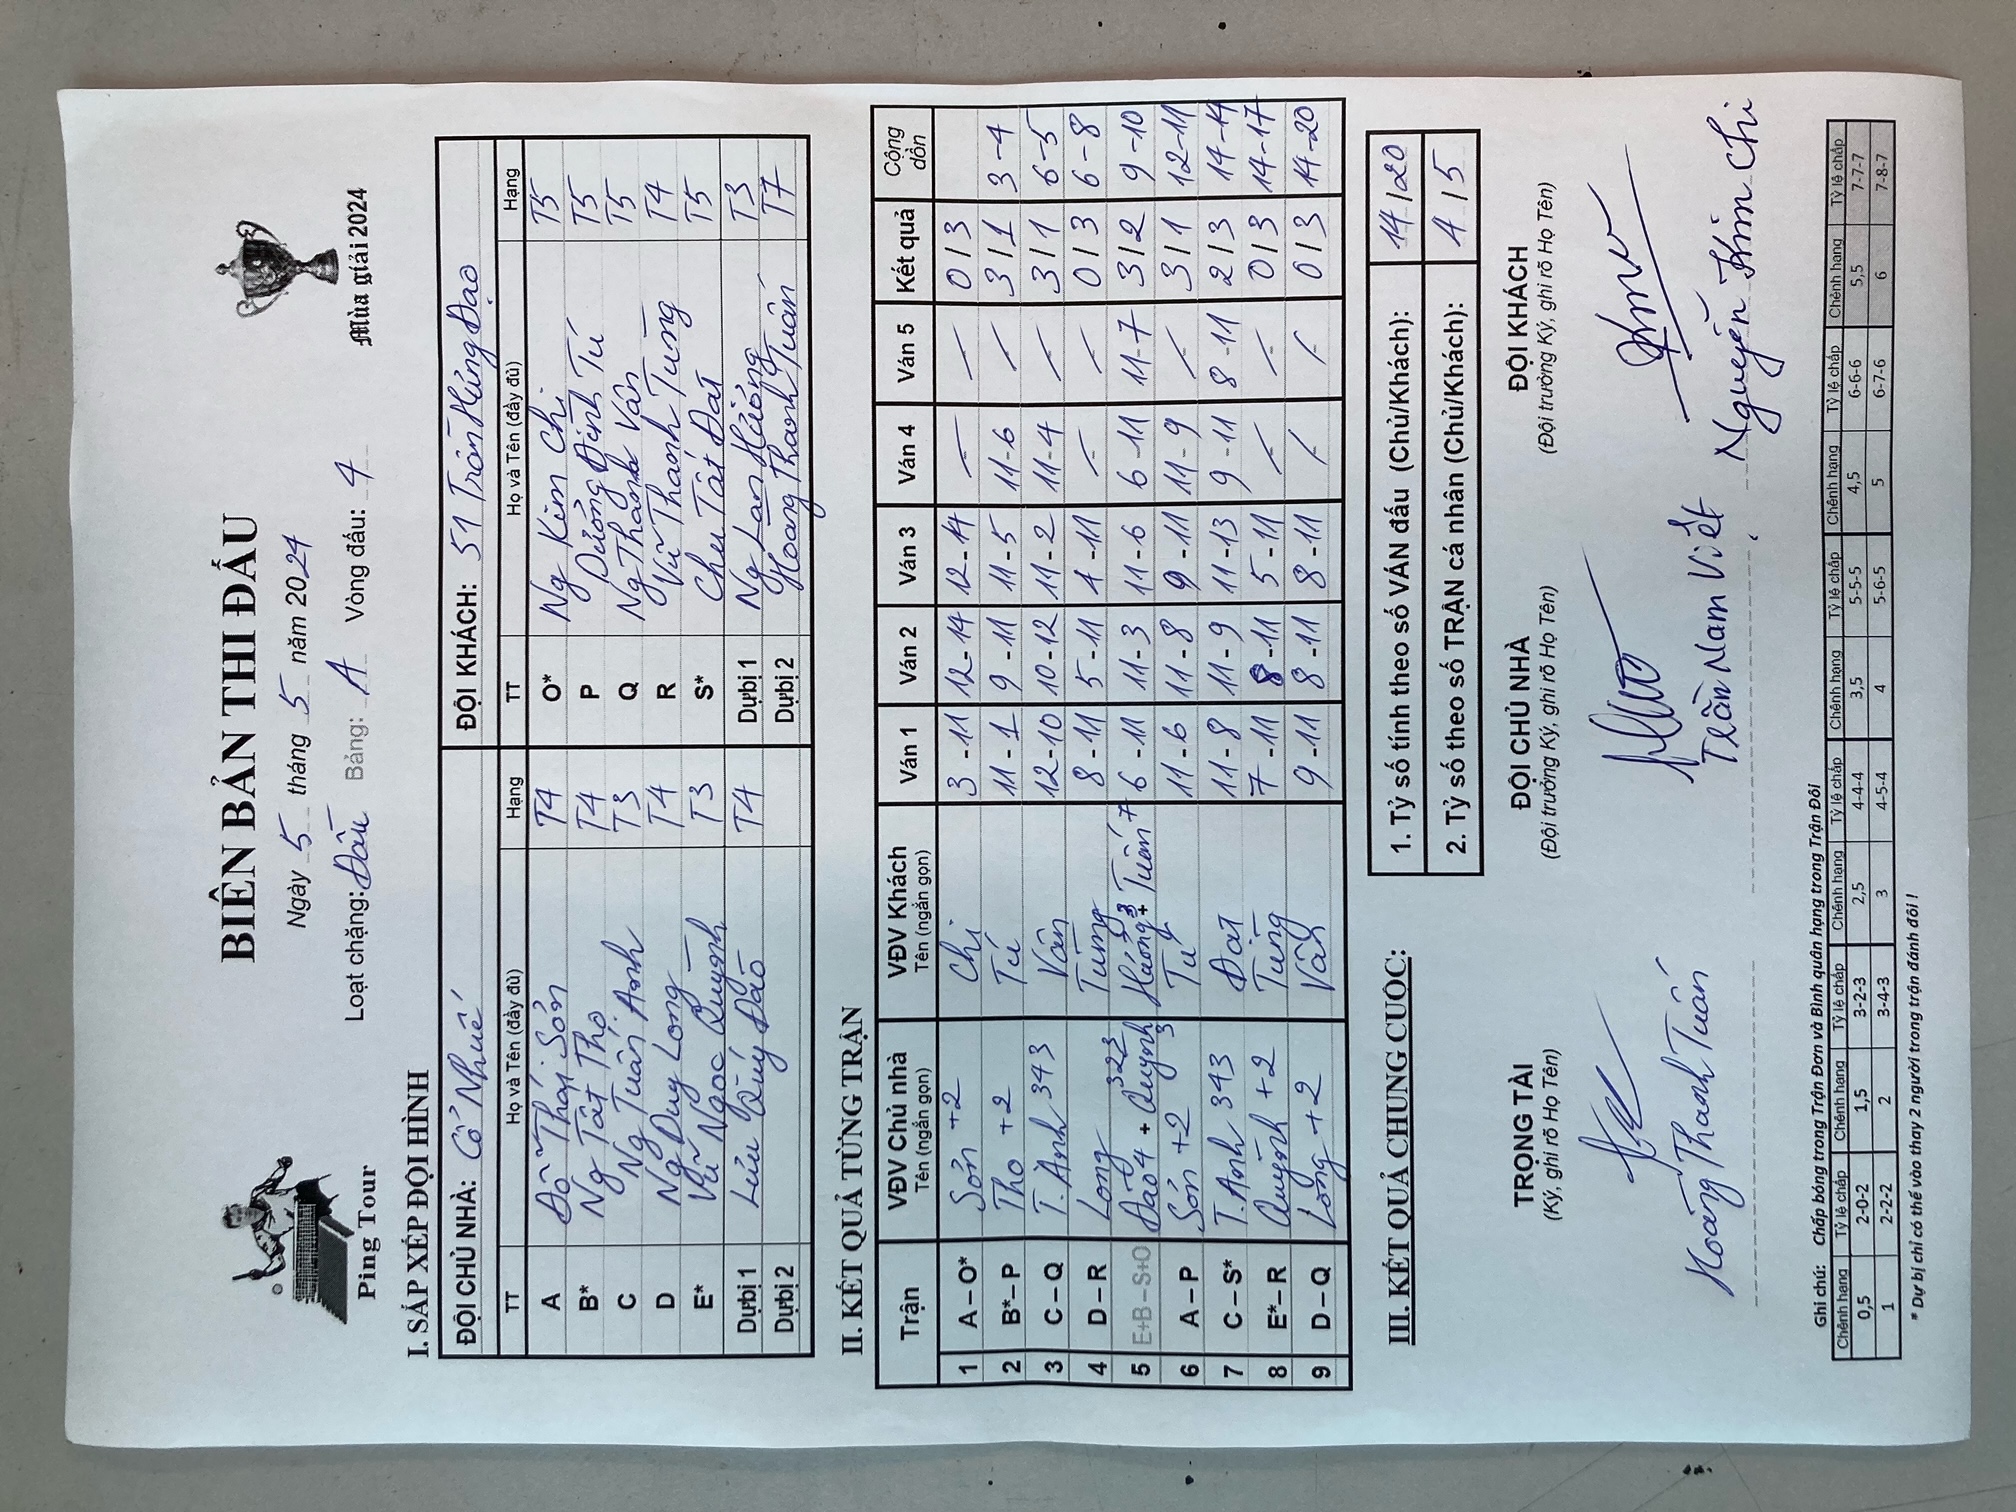 BIÊN BẢN THI ĐẤU
Ping Tour
Ngày 5 tháng 5 năm 2024
Loạt chặng: Đầu Bảng: A Vòng đấu: 4
Mùa giải 2024
I. SẮP XẾP ĐỘI HÌNH
ĐỘI CHỦ NHÀ: Cổ Nhuế ĐỘI KHÁCH: 51 Trần Hưng Đạo
TT Họ và Tên (đầy đủ) Hạng TT Họ và Tên (đầy đủ) Hạng
A Đỗ Thái Sơn T4 O* Ng Kim Chi T5
B* Ng Tất Thọ T4 P Dương Đình Tú T5
C Ng Tuấn Anh T3 Q Ng Thanh Vân T5
D Ng Duy Long T4 R Vũ Thanh Tùng T4
E* Vũ Ngọc Quỳnh T3 S* Chu Tất Đạt T5
Dự bị 1 Lưu Quý Đạo T4 Dự bị 1 Ng Lan Hương T3
Dự bị 2 Dự bị 2 Hoàng Thanh Tuấn T7
II. KẾT QUẢ TỪNG TRẬN
Trận VĐV Chủ nhà Tên (ngắn gọn) VĐV Khách Tên (ngắn gọn) Ván 1 Ván 2 Ván 3 Ván 4 Ván 5 Kết quả Cộng dồn
1 A – O* Sơn +2 Chi 3 - 11 12 - 14 12 - 14 — — 0 / 3
2 B* – P Thọ +2 Tú 11 - 1 9 - 11 11 - 5 11 - 6 — 3 / 1 3 - 4
3 C – Q T. Anh 343 Vân 12 - 10 10 - 12 11 - 2 11 - 4 — 3 / 1 6 - 5
4 D – R Long Tùng 8 - 11 5 - 11 4 - 11 — — 0 / 3 6 - 8
5 E+B – S+O Đạo4 + Quỳnh3 323 Hương3 + Tuấn7 6 - 11 11 - 3 11 - 6 6 - 11 11 - 7 3 / 2 9 - 10
6 A – P Sơn +2 Tú 11 - 6 11 - 8 9 - 11 11 - 9 — 3 / 1 12 - 11
7 C – S* T. Anh 343 Đạt 11 - 8 11 - 9 11 - 13 9 - 11 8 - 11 2 / 3 14 - 14
8 E* – R Quỳnh +2 Tùng 7 - 11 8 - 11 5 - 11 — — 0 / 3 14 - 17
9 D – Q Long +2 Vân 9 - 11 8 - 11 8 - 11 / / 0 / 3 14 - 20
III. KẾT QUẢ CHUNG CUỘC:
1. Tỷ số tính theo số VÁN đấu (Chủ/Khách): 14 / 20
2. Tỷ số theo số TRẬN cá nhân (Chủ/Khách): 4 / 5
TRỌNG TÀI ĐỘI CHỦ NHÀ ĐỘI KHÁCH
(Ký, ghi rõ Họ Tên) (Đội trưởng Ký, ghi rõ Họ Tên) (Đội trưởng Ký, ghi rõ Họ Tên)
Hoàng Thanh Tuấn Trần Nam Việt Nguyễn Kim Chi
Ghi chú: Chấp bóng trong Trận Đơn và Bình quân hạng trong Trận Đôi
Chênh hạng Tỷ lệ chấp Chênh hạng Tỷ lệ chấp Chênh hạng Tỷ lệ chấp Chênh hạng Tỷ lệ chấp Chênh hạng Tỷ lệ chấp Chênh hạng Tỷ lệ chấp
0,5 2-0-2 1,5 3-2-3 2,5 4-4-4 3,5 5-5-5 4,5 6-6-6 5,5 7-7-7
1 2-2-2 2 3-4-3 3 4-5-4 4 5-6-5 5 6-7-6 6 7-8-7
* Dự bị chỉ có thể vào thay 2 người trong trận đánh đôi !